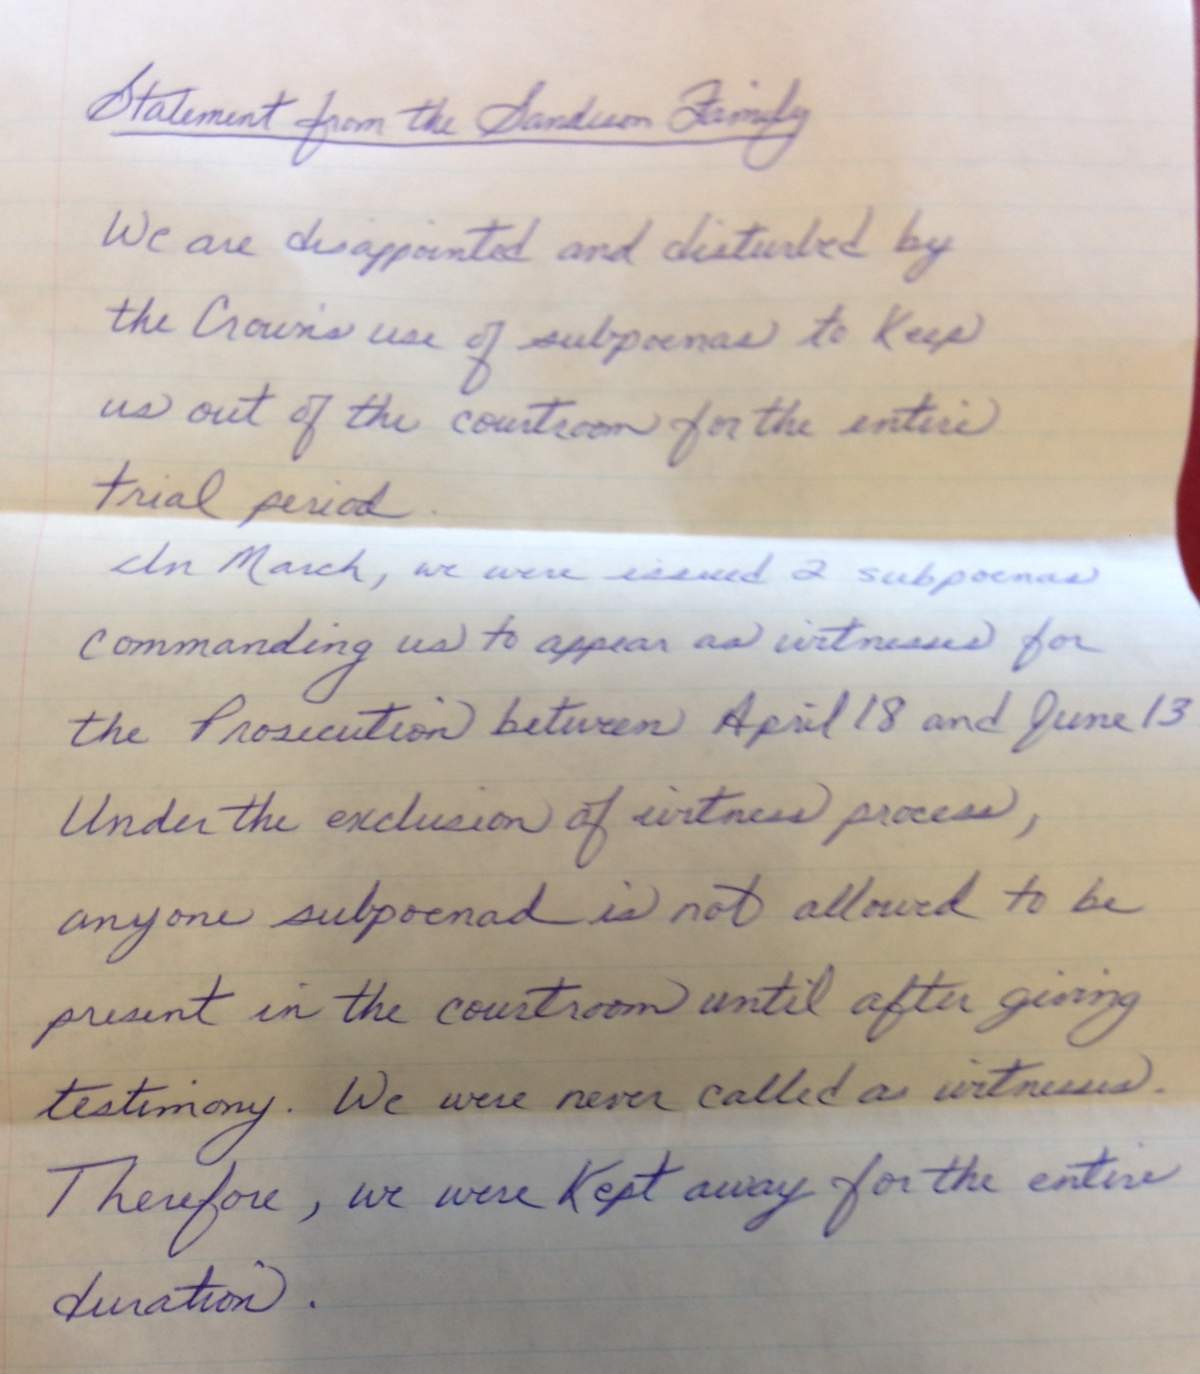 Statement from the Sandeson Family
We are disappointed and disturbed by
the Crown's use of subpoenas to Keep
us out of the courtroom for the entire
trial period.
In March, we were issued 2 subpoenas
commanding us to appear as witnesses for
the Prosecution between April 18 and June 13
Under the exclusion of witness process,
anyone subpoenad is not allowed to be
present in the courtroom until after giving
testimony. We were never called as witnesses.
Therefore, we were Kept away for the entire
duration.